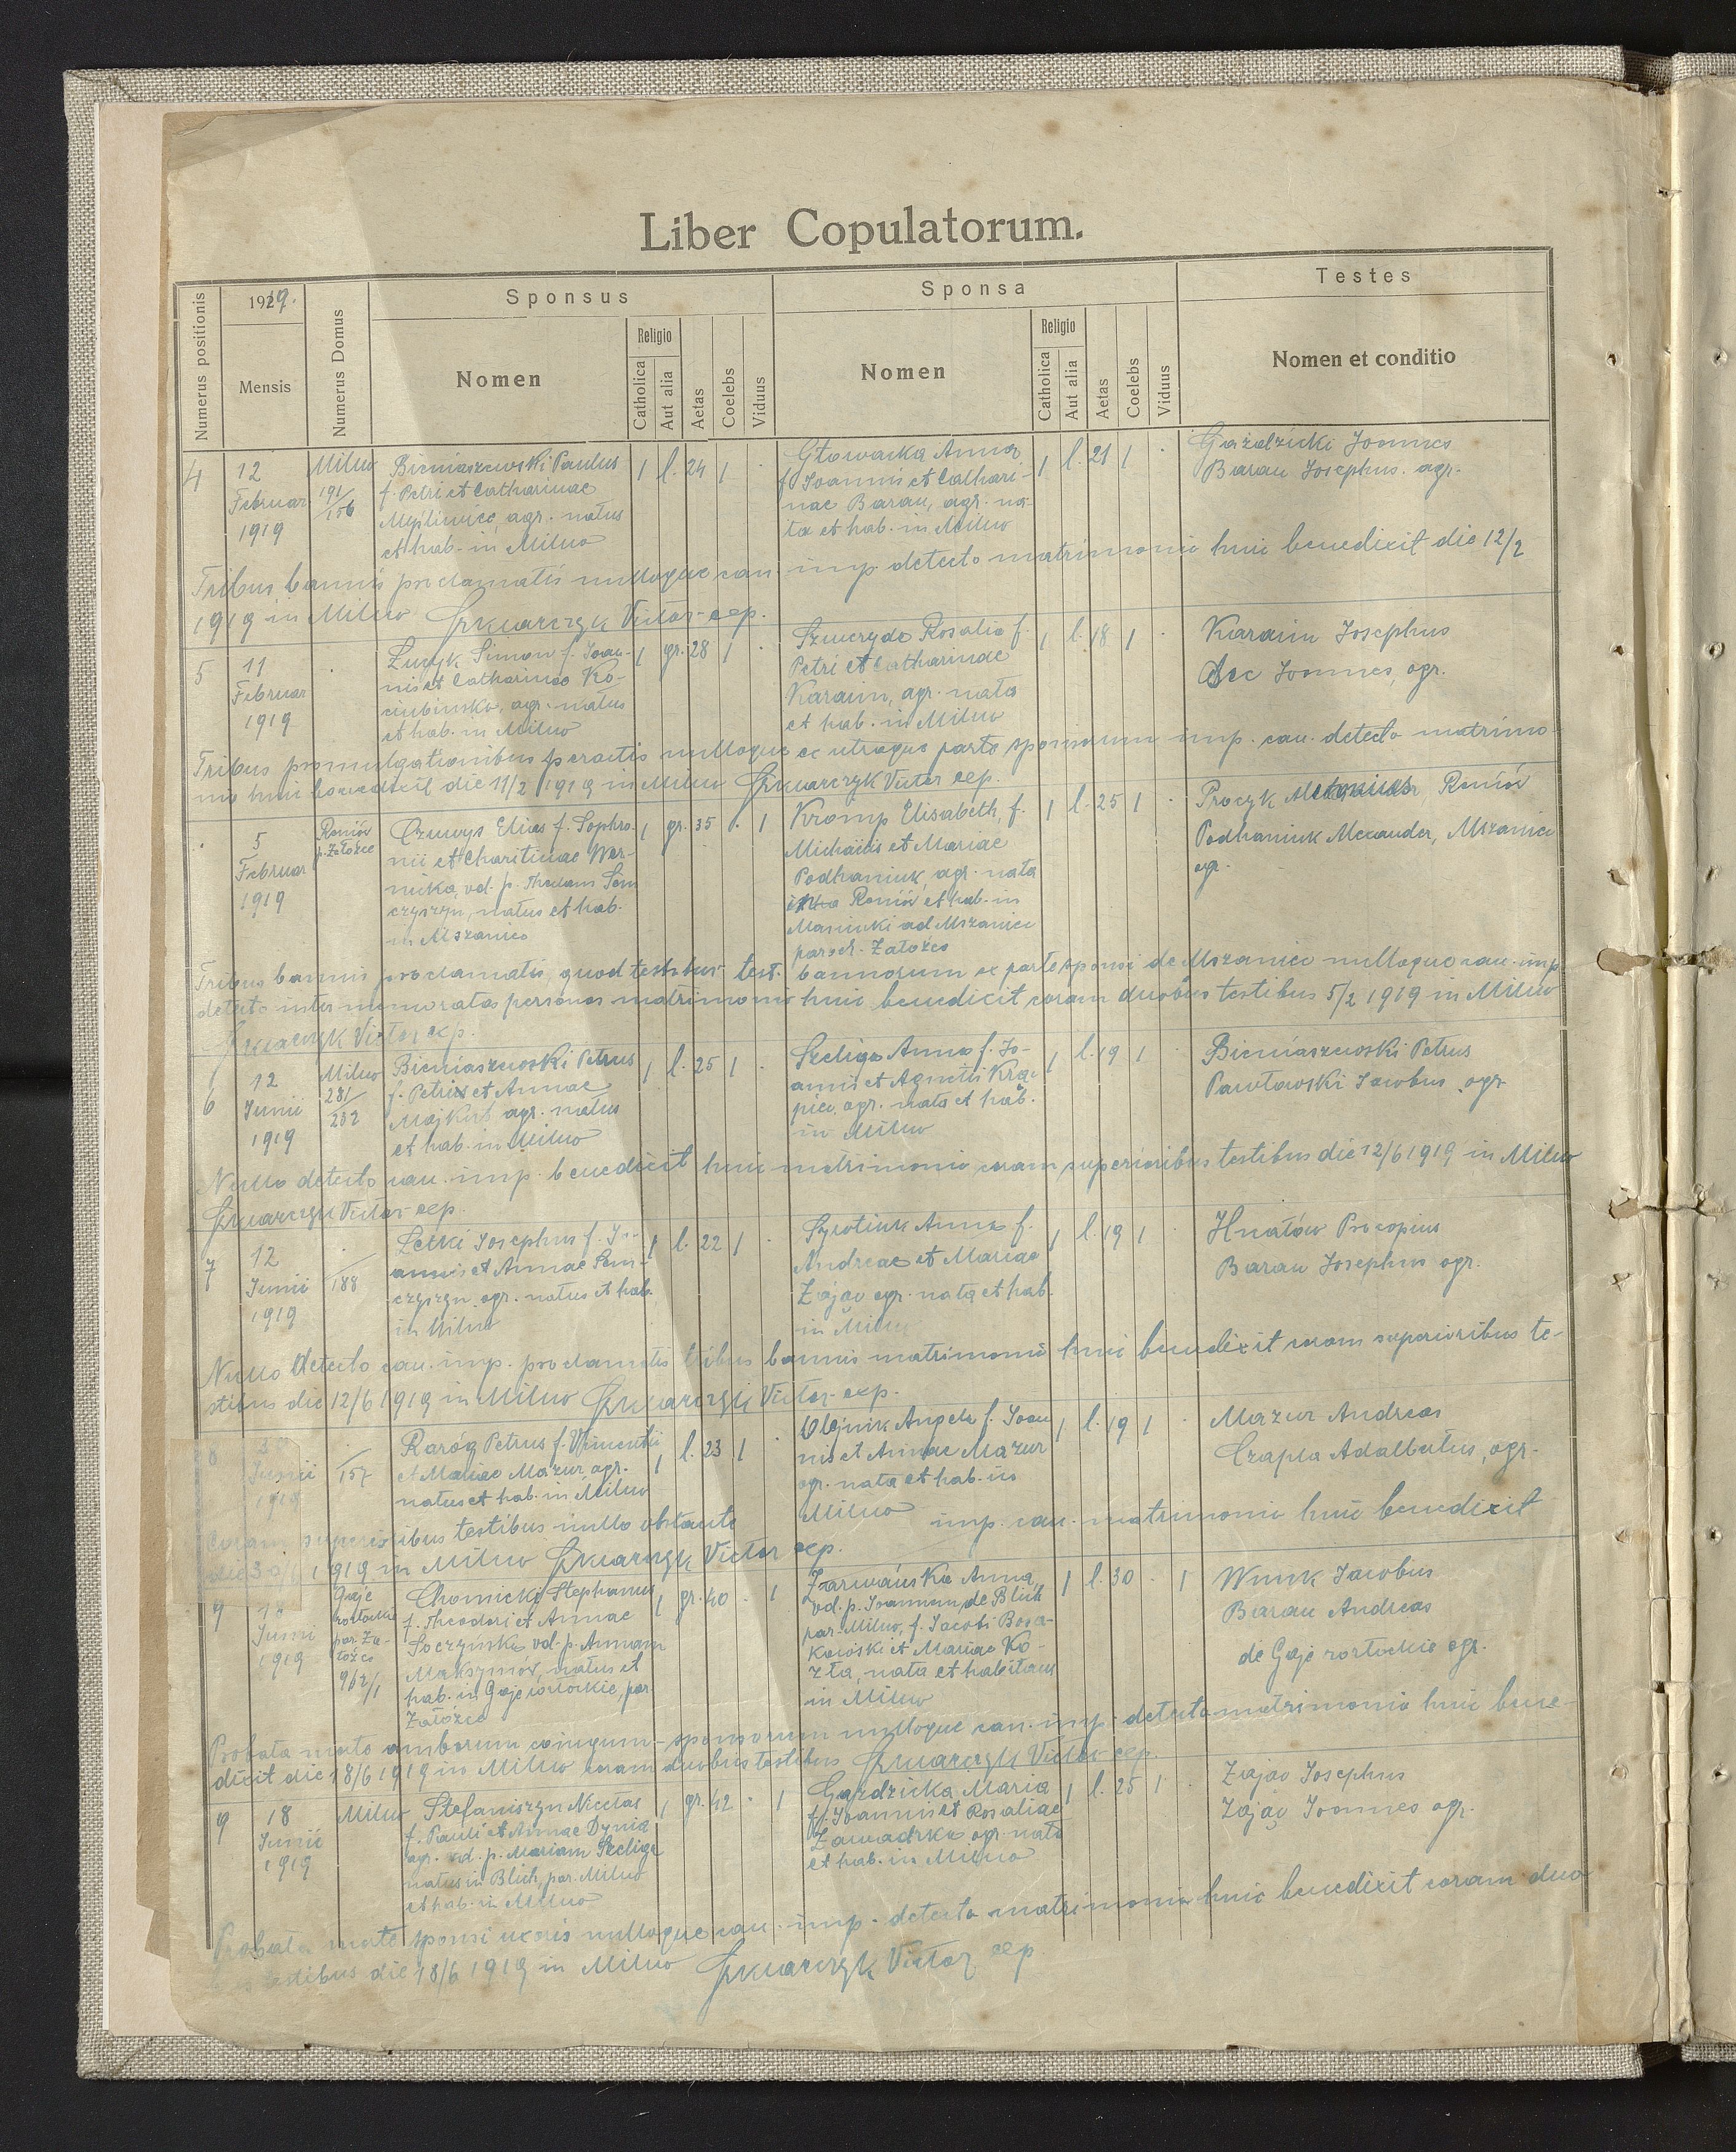 Liber Copulatorum.
Numerus positionis
1919.
Mensis
Numerus Domus
Sponsus
Nomen
Religio
Catholica
Aut alia
Aetas
Coelebs
Viduus
Sponsa
Nomen
Religio
Catholica
Aut alia
Aetas
Coelebs
Viduus
Testes
Nomen et conditio
4
12
Februar
1919
Milno
191/156
Bieniaszewski Paulus
f. Petri et Catharinae
agr. natus
et hab. in Milno
1 l. 24 1 .
Głowacka Anna
f Joannis et Cathari-
nae Baran, agr. na-
ta et hab. in Milno
1 l. 21 1 .
Joannes
Baran Josephus. agr.
Tribus bannis proclamatis nulloque can. imp. detecto matrimonio huic benedixit die 12/2
1919 in Milno Szkwarczyk Victor exp.
5
11
Februar
1919
.
Simon f. Joan-
nis et Catharinae Ko-
ciubińska, agr. natus
et hab. in Milno
1 gr. 28 1 .
Rosalia f.
Petri et Catharinae
Karaim, agr. nata
et hab. in Milno
1 l. 18 1 .
Karaim Josephus
Dec Joannes, agr.
Tribus promulgationibus peractis nulloque ex utraque parte sponsorum imp. can. detecto matrimo-
nio huic benedixit die 11/2 1919 in Milno Szkwarczyk Victor exp.
.
5
Februar
1919
Reniów
p. Załoźce
Elias f. Sophro-
nii et Charitinae Wer-
nicka, vd. p. Theclam Sem
czyszyn, natus et hab.
in Mszaniec
1 gr. 35 . 1
Kromp Elisabeth, f.
Michaelis et Mariae
Podhaniuk, agr. nata
Reniów et hab. in
ad Mszaniec
paroch. Załoźce
1 l. 25 1 .
Procyk Reniów
Podhaniuk Alexander, Mszaniec
agr.
Tribus bannis proclamatis, quod testibus test. bannorum ex parte sponsi de Mszaniec nulloque can. imp.
detecto inter memoratas personas matrimonio huic benedixit coram duobus testibus 5/2 1919 in Milno
Szkwarczyk Victor exp.
6
12
Junii
1919
Milno
281/
282
Bieniaszewski Petrus
f. Petri et Annae
Majkut agr. natus
et hab. in Milno
1 l. 25 1 .
Szeliga Anna f. Jo-
annis et Agnetis Krą-
piec, agr. nata et hab.
in Milno
1 l. 19 1 .
Bieniaszewski Petrus
Pawłowski Jacobus agr.
Nullo detecto can. imp. benedixit huic matrimonio coram superioribus testibus die 12/6 1919 in Milno
Szkwarczyk Victor exp.
7
12
Junii
1919
.
/188
Letki Josephus f. Jo-
annis et Annae Sem-
czyszyn agr. natus et hab.
in Milno
1 l. 22 1 .
Syrotiuk Anna f.
Andreae et Mariae
Zając agr. nata et hab.
in Milno
1 l. 19 1 .
Hnatów Procopius
Baran Josephus agr.
Nullo detecto can. imp. proclamatis tribus bannis matrimonio huic benedixit coram superioribus te-
stibus die 12/6 1919 in Milno Szkwarczyk Victor exp.
8
30
Junii
1919
.
/157
Raróg Petrus f. Vincentii
et Mariae Mazur, agr.
natus et hab. in Milno
1 l. 23 1 .
Olejnik Angela f. Joan
nis et Annae Mazur
agr. nata et hab. in
Milno
1 l. 19 1 .
Mazur Andreas
Czapla Adalbertus, agr.
Coram superioribus testibus nullo obstante imp. can. matrimonio huic benedixit
die 30/6 1919 in Milno Szkwarczyk Victor exp.
9
18
Junii
1919
Gaje
roztockie
par. Za-
łoźce
Chomicki Stephanus
f. Theodori et Annae
Soczyńska vd. p. Annam
Maksymów, natus et
hab. in Gaje roztockie, par.
Załoźce
1 gr. 40 . 1
Zarwańska Anna,
vd. p. Joannem, de Blich
par. Milno, f. Jacobi Bosa-
kowski et Mariae Ko-
zła, nata et habitans
in Milno
1 l. 30 . 1
Wnuk Jacobus
Baran Andreas
de Gaje roztockie agr.
Probata morte amborum coniugum sponsorum nulloque can. imp. detecto matrimonio huic bene-
dixit die 18/6 1919 in Milno coram duobus testibus Szkwarczyk Victor exp.
9
18
Junii
1919
Milno
Stefaniszyn Nicolas
f. Pauli et Annae Dynia
agr. vd. p. Mariam Szeliga
natus in Blich, par. Milno
et hab. in Milno
1 gr. 42 . 1
Gazdzicka Maria
f. Joannis et Rosaliae
Zawadzka agr. nata
et hab. in Milno
1 l. 25 1 .
Zając Josephus
Zając Joannes agr.
Probata morte sponsi uxoris nulloque can. imp. detecto matrimonio huic benedixit coram duo
bus testibus die 18/6 1919 in Milno Szkwarczyk Victor exp.